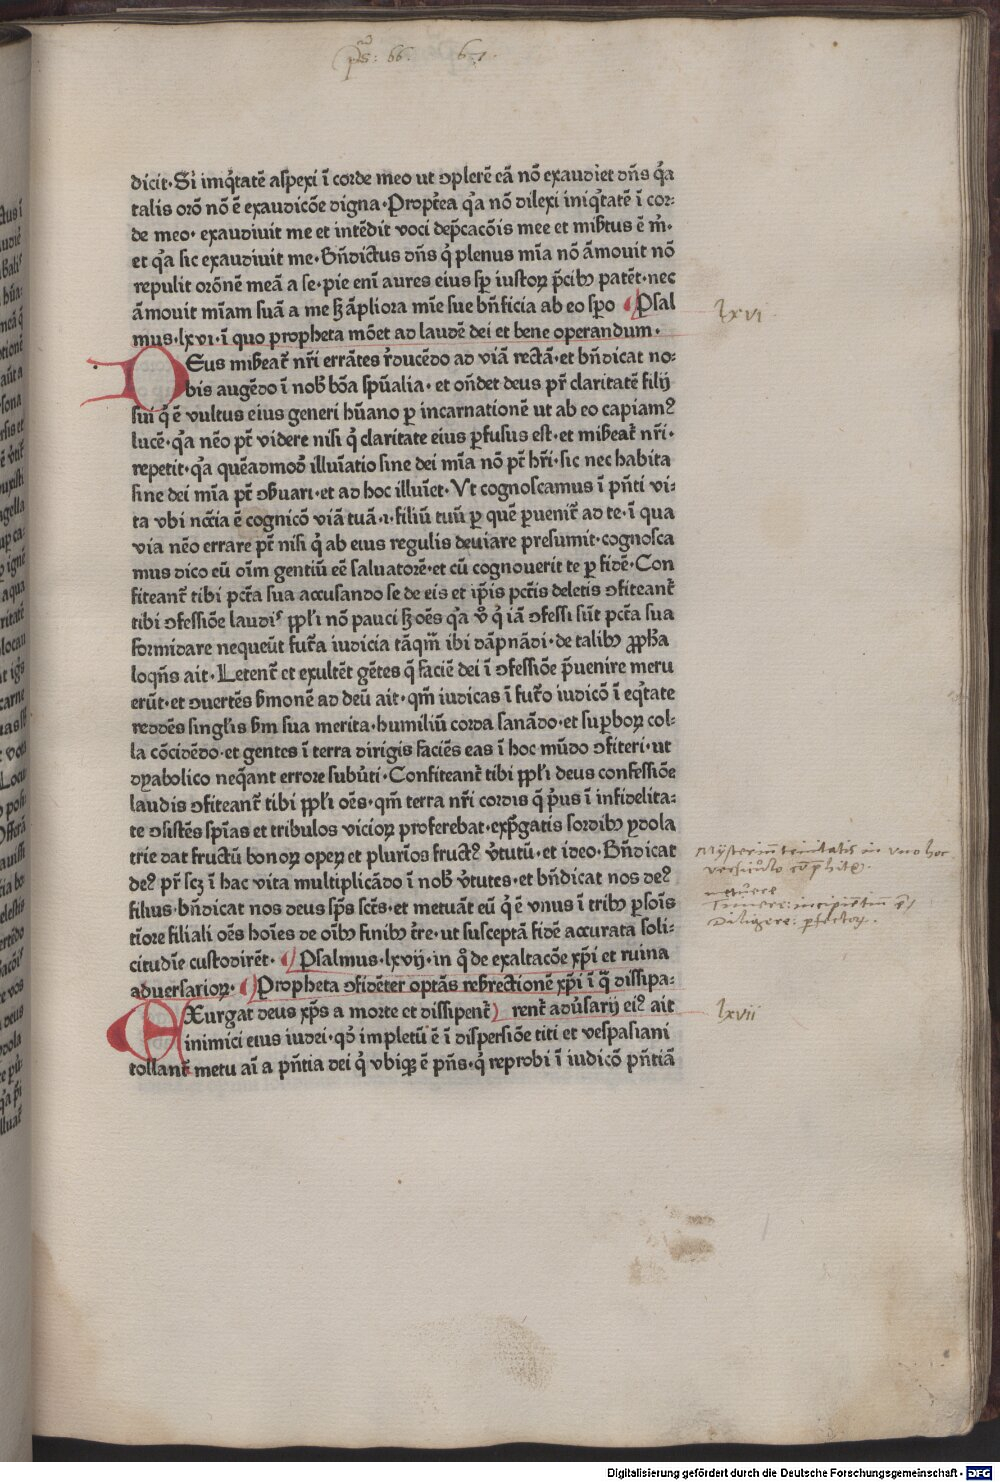 ps: 66. 67.
dicit· Si imqͥtatē aspexi ī corde meo ut ꝯplerē eā nō exaudiet dn̄s qͣ
talis orō nō ē exaudicōe digna· Propt̄ea qͣ nō dilexi iniqͥtatē ī cor:
de meo· exaudiuit me et intēdit voci dep̄cacōis mee et mib̄tus ē m̄·
et qͣ sic exaudiuit me· Bn̄dictus dn̄s qͥ plenus mīa nō āmouit nō
repulit orōnē meā a se· pie enī aures eius sꝑ iustoꝝ p̄cibꝫ patēt· nec
āmouit mīam suā a me sꝫ āpliora mīe sue bn̄ficia ab eo spo Psal
mus· lxvi· ī quo propheta mōet ad laudē dei et bene operandum·
lxvi
DEus mib̄eat̄ nr̄i errātes r̄ducēdo ad viā rectā· et bn̄dicat no:
bis augēdo ī nob̄ bōa spūalia· et on̄det deus pr̄ claritatē filij
sui qͥ ē vultus eius generi hūano ꝑ incarnationē ut ab eo capiamꝰ
lucē· qͣ nēo pt̄ videre nisi qͥ claritate eius ꝑfusus est· et mib̄eat̄ nr̄i·
repetit· qͣ quēadmoꝺ̄ illuīatio sine dei mīa nō pt̄ hr̄i· sic nec habita
sine dei mīa pt̄ ꝯb̄uari· et ad hoc illuīet· Vt cognoscamus ī pn̄ti vi:
ta vbi nēcīa ē cognicō viā tuā ·ı· filiū tuū ꝑ quē ꝑuenit̄ ad te· ī qua
via nēo errare pt̄ nisi qͥ ab eius regulis deuiare presumit· cognosca
mus dico eū oīm gentiū eē saluatorē· et cū cognouerit te ꝑ fidē· Con
fiteant̄ tibi pctā sua accusando se de eis et ip̄is pctīs deletis ꝯfiteant̄
tibi ꝯfessiōe laudiſ pp̄l'i nō pauci sꝫ oēs qͣ v̄o qͥ iā ꝯfessi sūt pctā sua
formidare nequeūt fut̄a iudicia tāqͫ ibi dāpnādi· de talibꝫ ꝓpħa
loqn̄s ait· Letent̄ et exultēt gētes qͥ faciē dei ī ꝯfessiōe p̄uenire meru
erūt· et ꝯuertēs b̄monē ad deū ait· qm̄ iudicas ī fut̄o iudicō ī eqͥtate
reddēs singl'is b̄m sua merita· humiliū corda sanādo· et suꝑboꝝ col:
la cōcidēdo· et gentes ī terra dirigis faciēs eas ī hoc mūdo ꝯfiteri· ut
dyabolico neqͣant errore subūti· Confiteant̄ tibi pp̄l'i deus confessiōe
laudis ꝯfiteant̄ tibi pp̄l'i oēs· qm̄ terra nr̄i cordis q̄ p̄us ī infidelita:
te ꝯsistēs spīas et tribulos vicioꝝ proferebat· exp̄gatis sordibꝫ ydola
trie dat fructū bonoꝝ opeꝝ et plurīos fructꝰ v̄tutū· et ideo· Bn̄dicat
deꝰ pr̄ scꝫ ī hac vita multiplicādo ī nob̄ v̄tutes· et bn̄dicat nos deꝰ
filius· bn̄dicat nos deus sp̄s sct̄s· et metuāt eū qͥ ē vnus ī tribꝫ ꝑsoīs
tīore filiali oēs hoīes de oībꝫ finibꝫ t̄re· ut susceptā fidē accurata soli:
citudīe custodirēt· Psalmus· lxvij· in qͦ de exaltacōe xp̄i et ruina
aduersarioꝝ· Propheta ꝯfidēter optās reb̄rectionē xp̄i ī q̄ dissipa:
Mysteriū trinitatis in vno hoc
versiculo cōphite.
metuere
Timere: incipientiū ē,
Diligere: ꝑfectoꝝ.
EXurgat deus xp̄s a morte et dissipent̄ rent̄ adūsarij eiꝰ ait
lxvii
inimici eius iudei· qꝺ impletū ē ī dispersiōe titi et vespasiani
tollant̄ metu aī a pn̄tia dei qͥ vbiqꝫ ē pn̄s· qͥ reprobi ī iudicō pn̄tiā
Digitalisierung gefördert durch die Deutsche Forschungsgemeinschaft - DFG